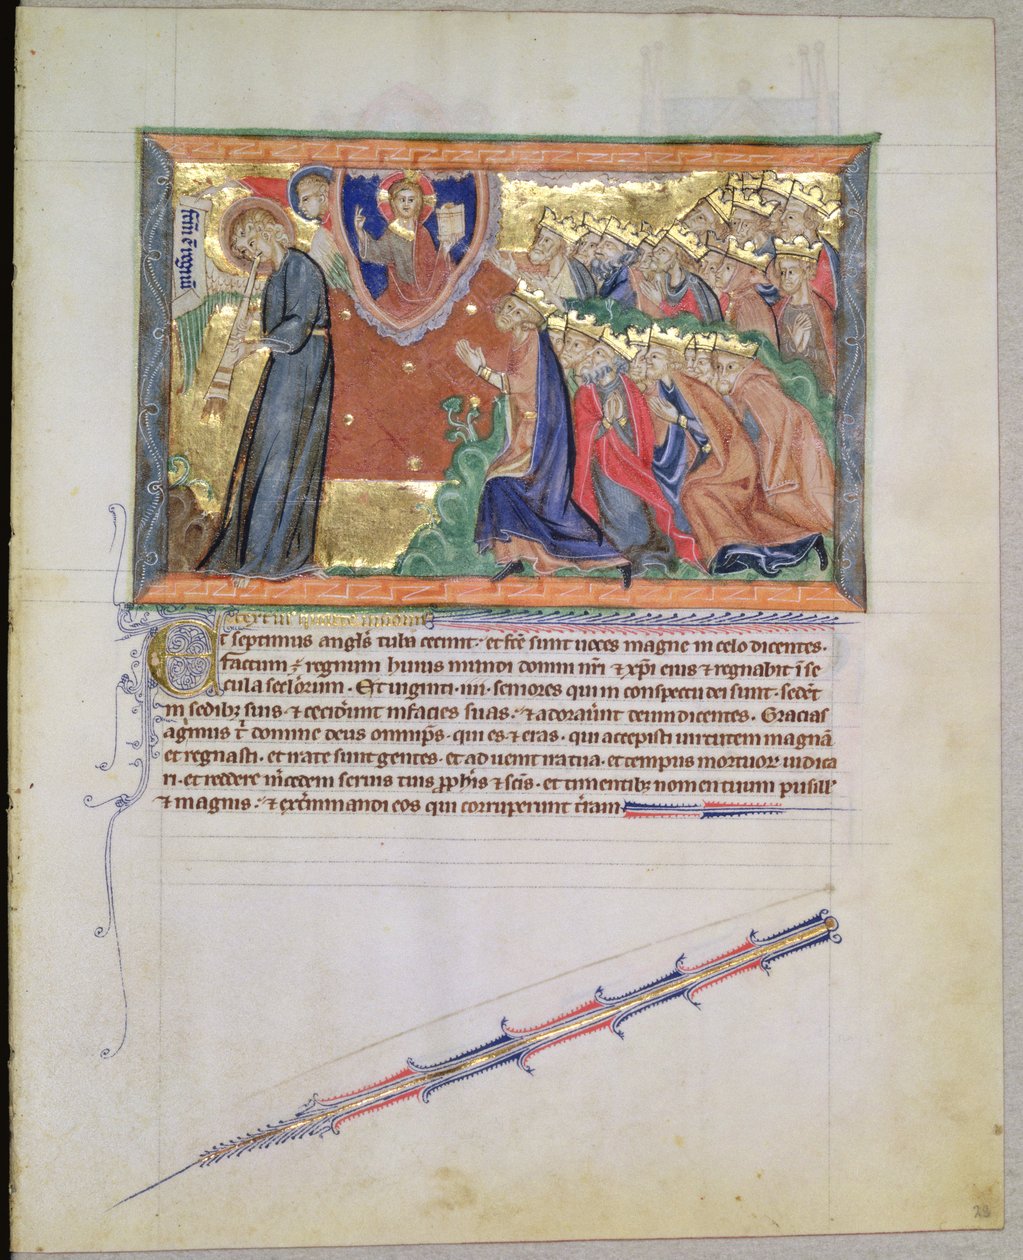 Et septimus angl's tuba cecinit· et fc̄e sunt uoces magne in celo dicentes·
factum ē regnum huius mundi domini nr̄i & xp̄i eius & regnabit ī se
cula sec̄lorum· Et uiginti ·iiii· seniores qui in conspectu dei sunt· sedēt
in sedibꝫ suis· & ceciderunt in facies suas· & adorauerunt deum dicentes· Gracias
agimus t̄ domine deus omnip̄s· qui es & eras· qui accepisti uirtutem magnā
et regnasti· et irate sunt gentes· et aduenit ira tua· et tempus mortuoꝝ iudica
ri· et reddere m̄cedem seruis tuis ꝓph̄is & sc̄is· et timentibꝫ nomen tuum pusill'
& magnis· & ext̄minandi eos qui corruperunt t̄ram
28